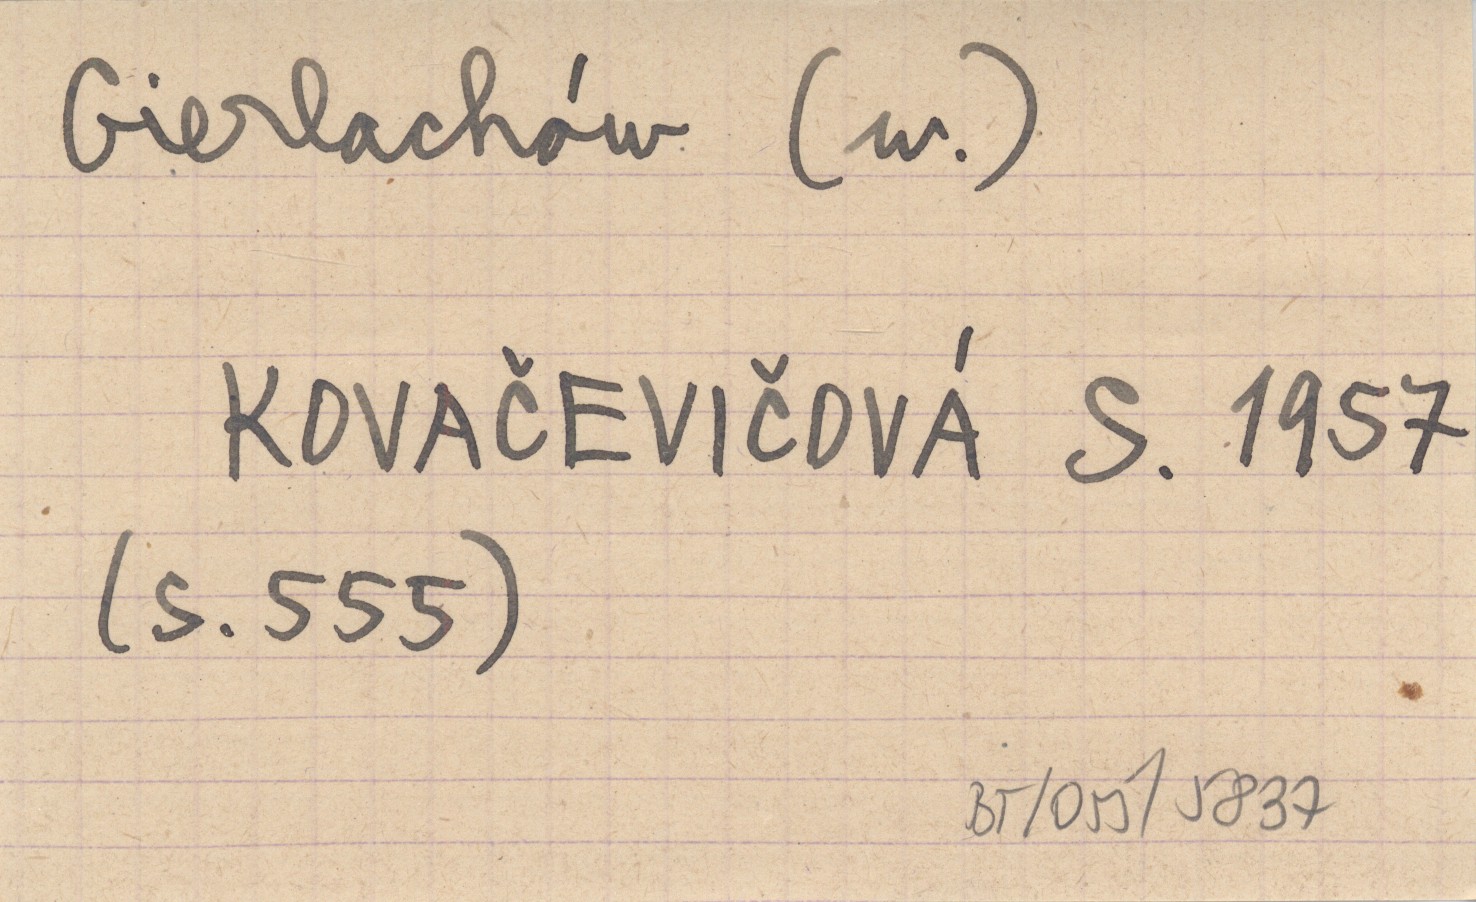 Gierlachów (w.)
KOVAČEVIČOVÁ S. 1957
(s. 555)
BT/OJJ/5837